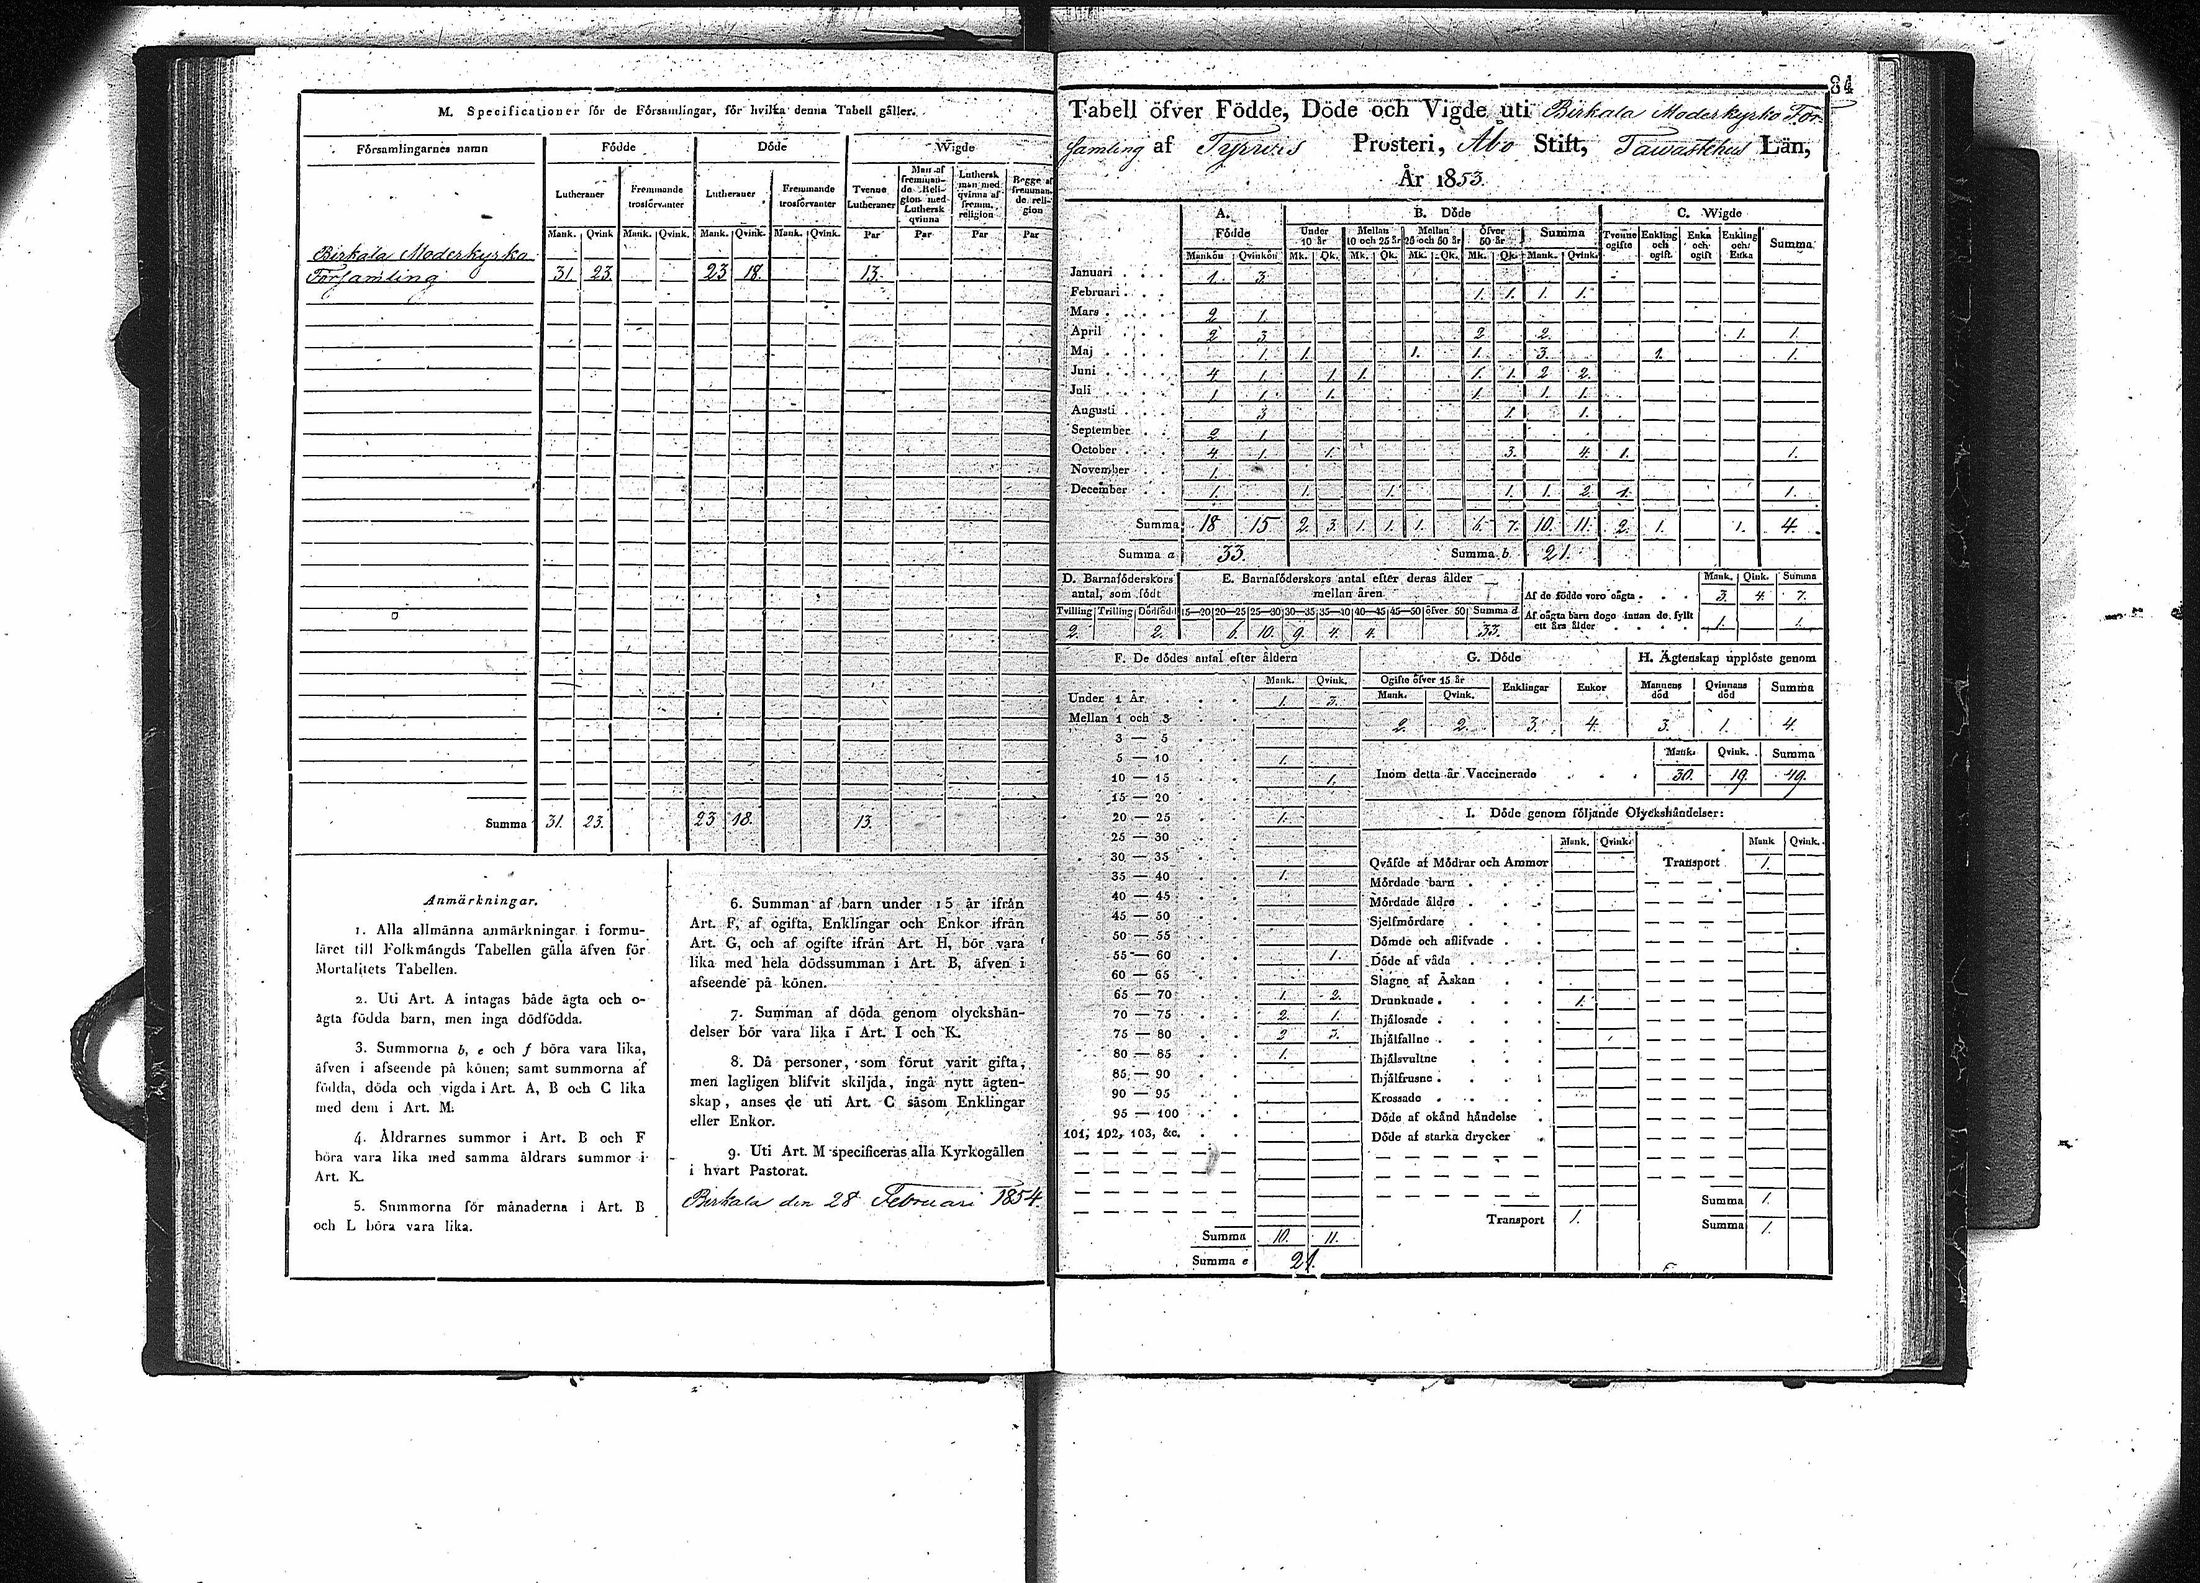 M. Specificationer för de Församlingar, för hvilka denna Tabell gäller.
Församlingarnes namn Födde Döde Wigde
Lutheraner Fremmande trosförvanter Lutheraner Fremmande trosförvanter Tvenne Lutheraner Man af fremmande Religion med Luthersk qvinna Luthersk man med qvinna af fremm. religion Begge af fremmande religion
Mank. Qvink Mank. Qvink. Mank. Qvink. Mank. Qvink. Par Par Par Par
Birkala Moderkyrko
Församling 31. 23. 23 18. 13.
Summa 31. 23. 23 18. 13.
Anmärkningar.
1. Alla allmänna anmärkningar i formu-
läret till Folkmängds Tabellen gälla äfven för
Mortalitets Tabellen.
2. Uti Art. A intagas både ägta och o-
ägta födda barn, men inga dödfödda.
3. Summorna b, e och f böra vara lika,
äfven i afseende på könen; samt summorna af
födda, döda och vigda i Art. A, B och C lika
med dem i Art. M.
4. Åldrarnes summor i Art. B och F
böra vara lika med samma åldrars summor i
Art. K.
5. Summorna för månaderna i Art. B
och L böra vara lika.
6. Summan af barn under 15 år ifrån
Art. F, af ogifta, Enklingar och Enkor ifrån
Art. G, och af ogifte ifrån Art. H, bör vara
lika med hela dödssumman i Art. B, äfven i
afseende på könen.
7. Summan af döda genom olyckshän-
delser bör vara lika i Art. I och K.
8. Då personer, som förut varit gifta,
men lagligen blifvit skiljda, ingå nytt ägten-
skap, anses de uti Art. C såsom Enklingar
eller Enkor.
9. Uti Art. M specificeras alla Kyrkogällen
i hvart Pastorat.
Birkala den 28 Februari 1854.
84
Tabell öfver Födde, Döde och Vigde uti Birkala Moderkyrko För-
samling af Prosteri, Åbo Stift, Tawastehus Län,
År 1853.
A. Födde B. Döde C. Wigde
Under 10 år Mellan 10 och 25 år Mellan 25 och 50 år Öfver 50 år Summa Tvenne ogifte Enkling och ogift Enka och ogift Enkling och Enka Summa
Mankön Qvinkön Mk. Qk. Mk. Qk. Mk. Qk. Mk. Qk. Mank. Qvink.
Januari 1. 3.
Februari 1. 1. 1. 1.
Mars 2 1.
April 2 3 2 2. 1. 1.
Maj 1. 1. 1. 1. 3. 1. 1.
Juni 4 1. 1. 1. 1. 1. 2 2.
Juli 1 1. 1. 1. 1. 1.
Augusti 3 1. 1.
September 2 1.
October 4. 1. 1. 3. 4. 1. 1.
November 1.
December 1. 1. 1. 1. 1. 2. 1. 1.
Summa 18 15 2. 3. 1. 1. 1. 6. 7. 10. 11. 2. 1. 1. 4.
Summa a 33. Summa b 21.
D. Barnaföderskors antal, som födt E. Barnaföderskors antal efter deras ålder mellan åren Mank. Qink. Summa
Af de födde voro oägta 3. 4. 7.
Tvilling Trilling Dödfödd 15—20 20—25 25—30 30—35 35—40 40—45 45—50 öfver 50 Summa d
Af oägta barn dogo innan de fyllt ett års ålder 1. 1.
2. 2. 6. 10. 9. 4. 4. 33.
F. De dödes antal efter åldern G. Döde H. Ägtenskap upplöste genom
Mank. Qvink. Ogifte öfver 15 år Mank. Qvink. Enklingar Enkor Mannens död Qvinnans död Summa
2. 2. 3. 4. 3. 1. 4.
Under 1 År 1. 3.
Mellan 1 och 3
3 — 5
5 — 10 1.
10 — 15 1.
15 — 20
20 — 25 1.
25 — 30
30 — 35
35 — 40 1.
40 — 45
45 — 50
50 — 55
55 — 60 1.
60 — 65
65 — 70 1. 2.
70 — 75 2. 1.
75 — 80 2 3.
80 — 85 1.
85 — 90
90 — 95
95 — 100
101, 102, 103, &c.
Summa 10. 11.
Summa e 21.
Mank. Qvink. Summa
Inom detta år Vaccinerade 30. 19. 49.
I. Döde genom följande Olyckshändelser:
Mank. Qvink. Mank Qvink.
Qväfde af Mödrar och Ammor Transport 1.
Mördade barn
Mördade äldre
Sjelfmördare
Dömde och aflifvade
Döde af våda
Slagne af Åskan
Drunknade 1.
Ihjälosade
Ihjälfallne
Ihjälsvultne
Ihjälfrusne
Krossade
Döde af okänd händelse
Döde af starka drycker
Summa 1.
Transport 1. Summa 1.